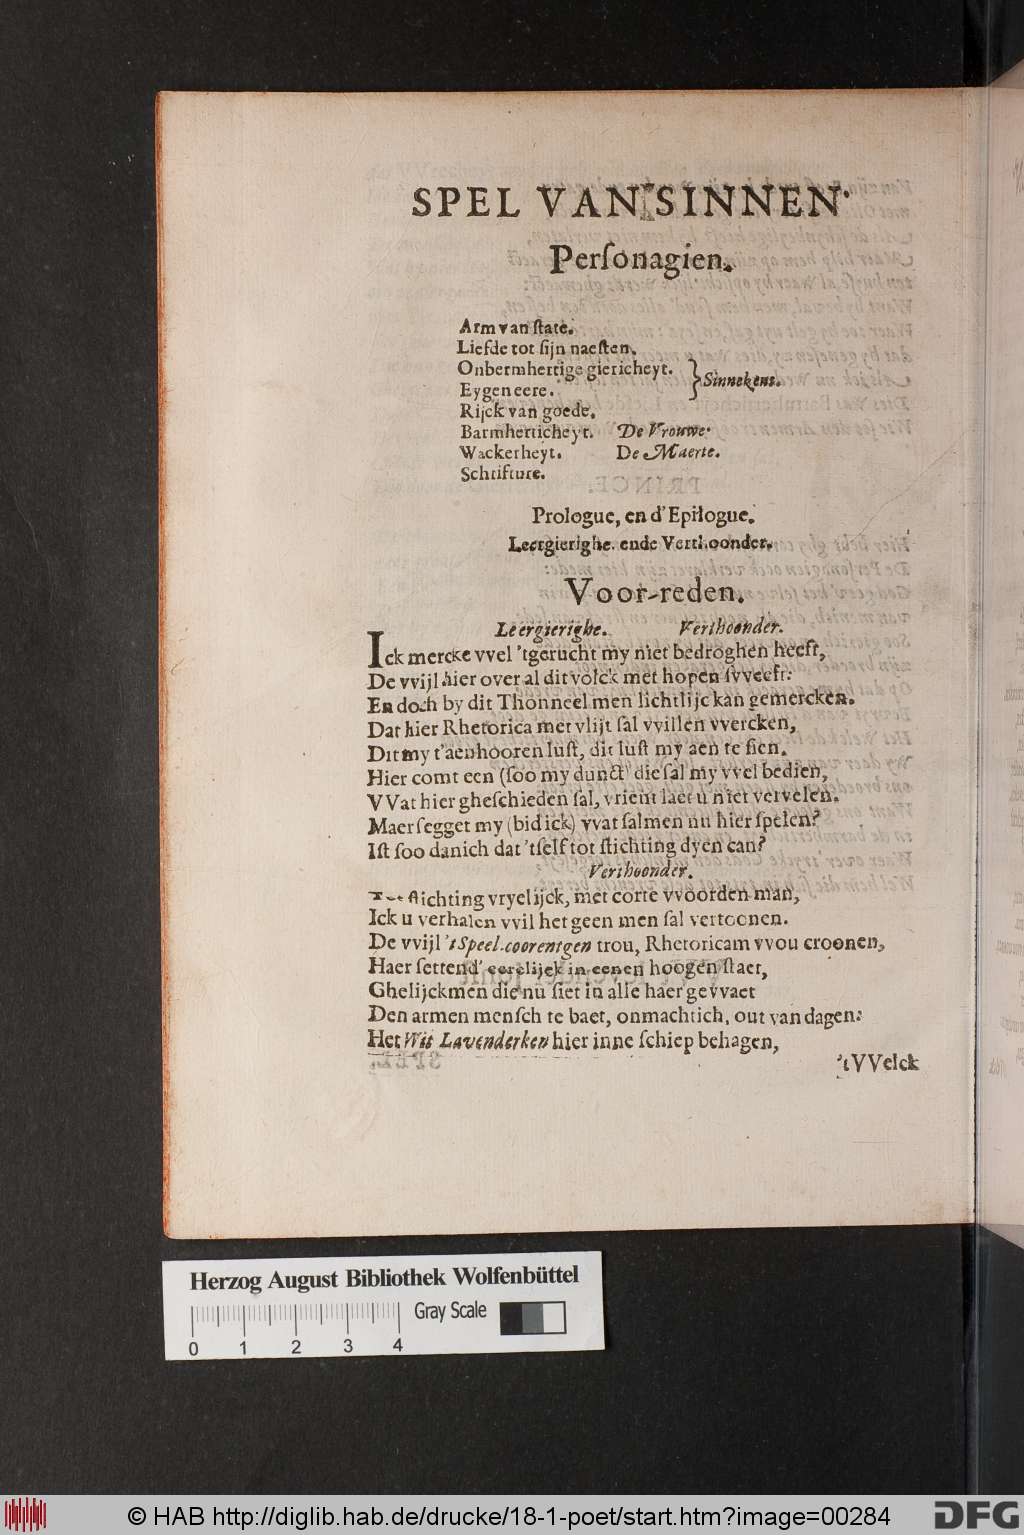 SPEL VAN SINNEN.
Perſonagien.
Arm van ſtate.
Liefde tot ſijn naeſten.
Onbermhertige giericheyt. } Sinnekens.
Eygen eere.
Rijck van goede.
Barmherticheyt. De Vrouwe.
Wackerheyt. De Maerte.
Schrifture.
Prologue, en d'Epilogue.
Leergierighe. ende Verthoonder.
Voor-reden.
Leergierighe. Verthoonder.
Ick mercke vvel 'tgerucht my niet bedroghen heeft,
De vvijl hier over al dit volck met hopen ſvveeft:
En doch by dit Thonneel men lichtlijc kan gemercken.
Dat hier Rhetorica met vlijt ſal vvillen vvercken,
Dit my t'aenhooren luſt, dit luſt my aen te ſien.
Hier comt een (ſoo my dunct) die ſal my vvel bedien,
VVat hier gheſchieden ſal, vrient laet u niet vervelen.
Maer ſegget my (bid ick) vvat ſalmen nu hier ſpelen?
Iſt ſoo danich dat 'tſelf tot ſtichting dyen can?
Verthoonder.
ſtichting vryelijck, met corte vvoorden man,
Ick u verhalen vvil het geen men ſal vertoonen.
De vvijl 't Speel-coorentgen trou, Rhetoricam vvou croonen,
Haer ſettend' eerelijck in eenen hoogen ſtaet,
Ghelijckmen die nu ſiet in alle haer gevvaet
Den armen menſch te baet, onmachtich, out van dagen:
Het Wit Lavenderken hier inne ſchiep behagen,
'tVVelck
Herzog August Bibliothek Wolfenbüttel
Gray Scale
0 1 2 3 4
© HAB http://diglib.hab.de/drucke/18-1-poet/start.htm?image=00284
DFG